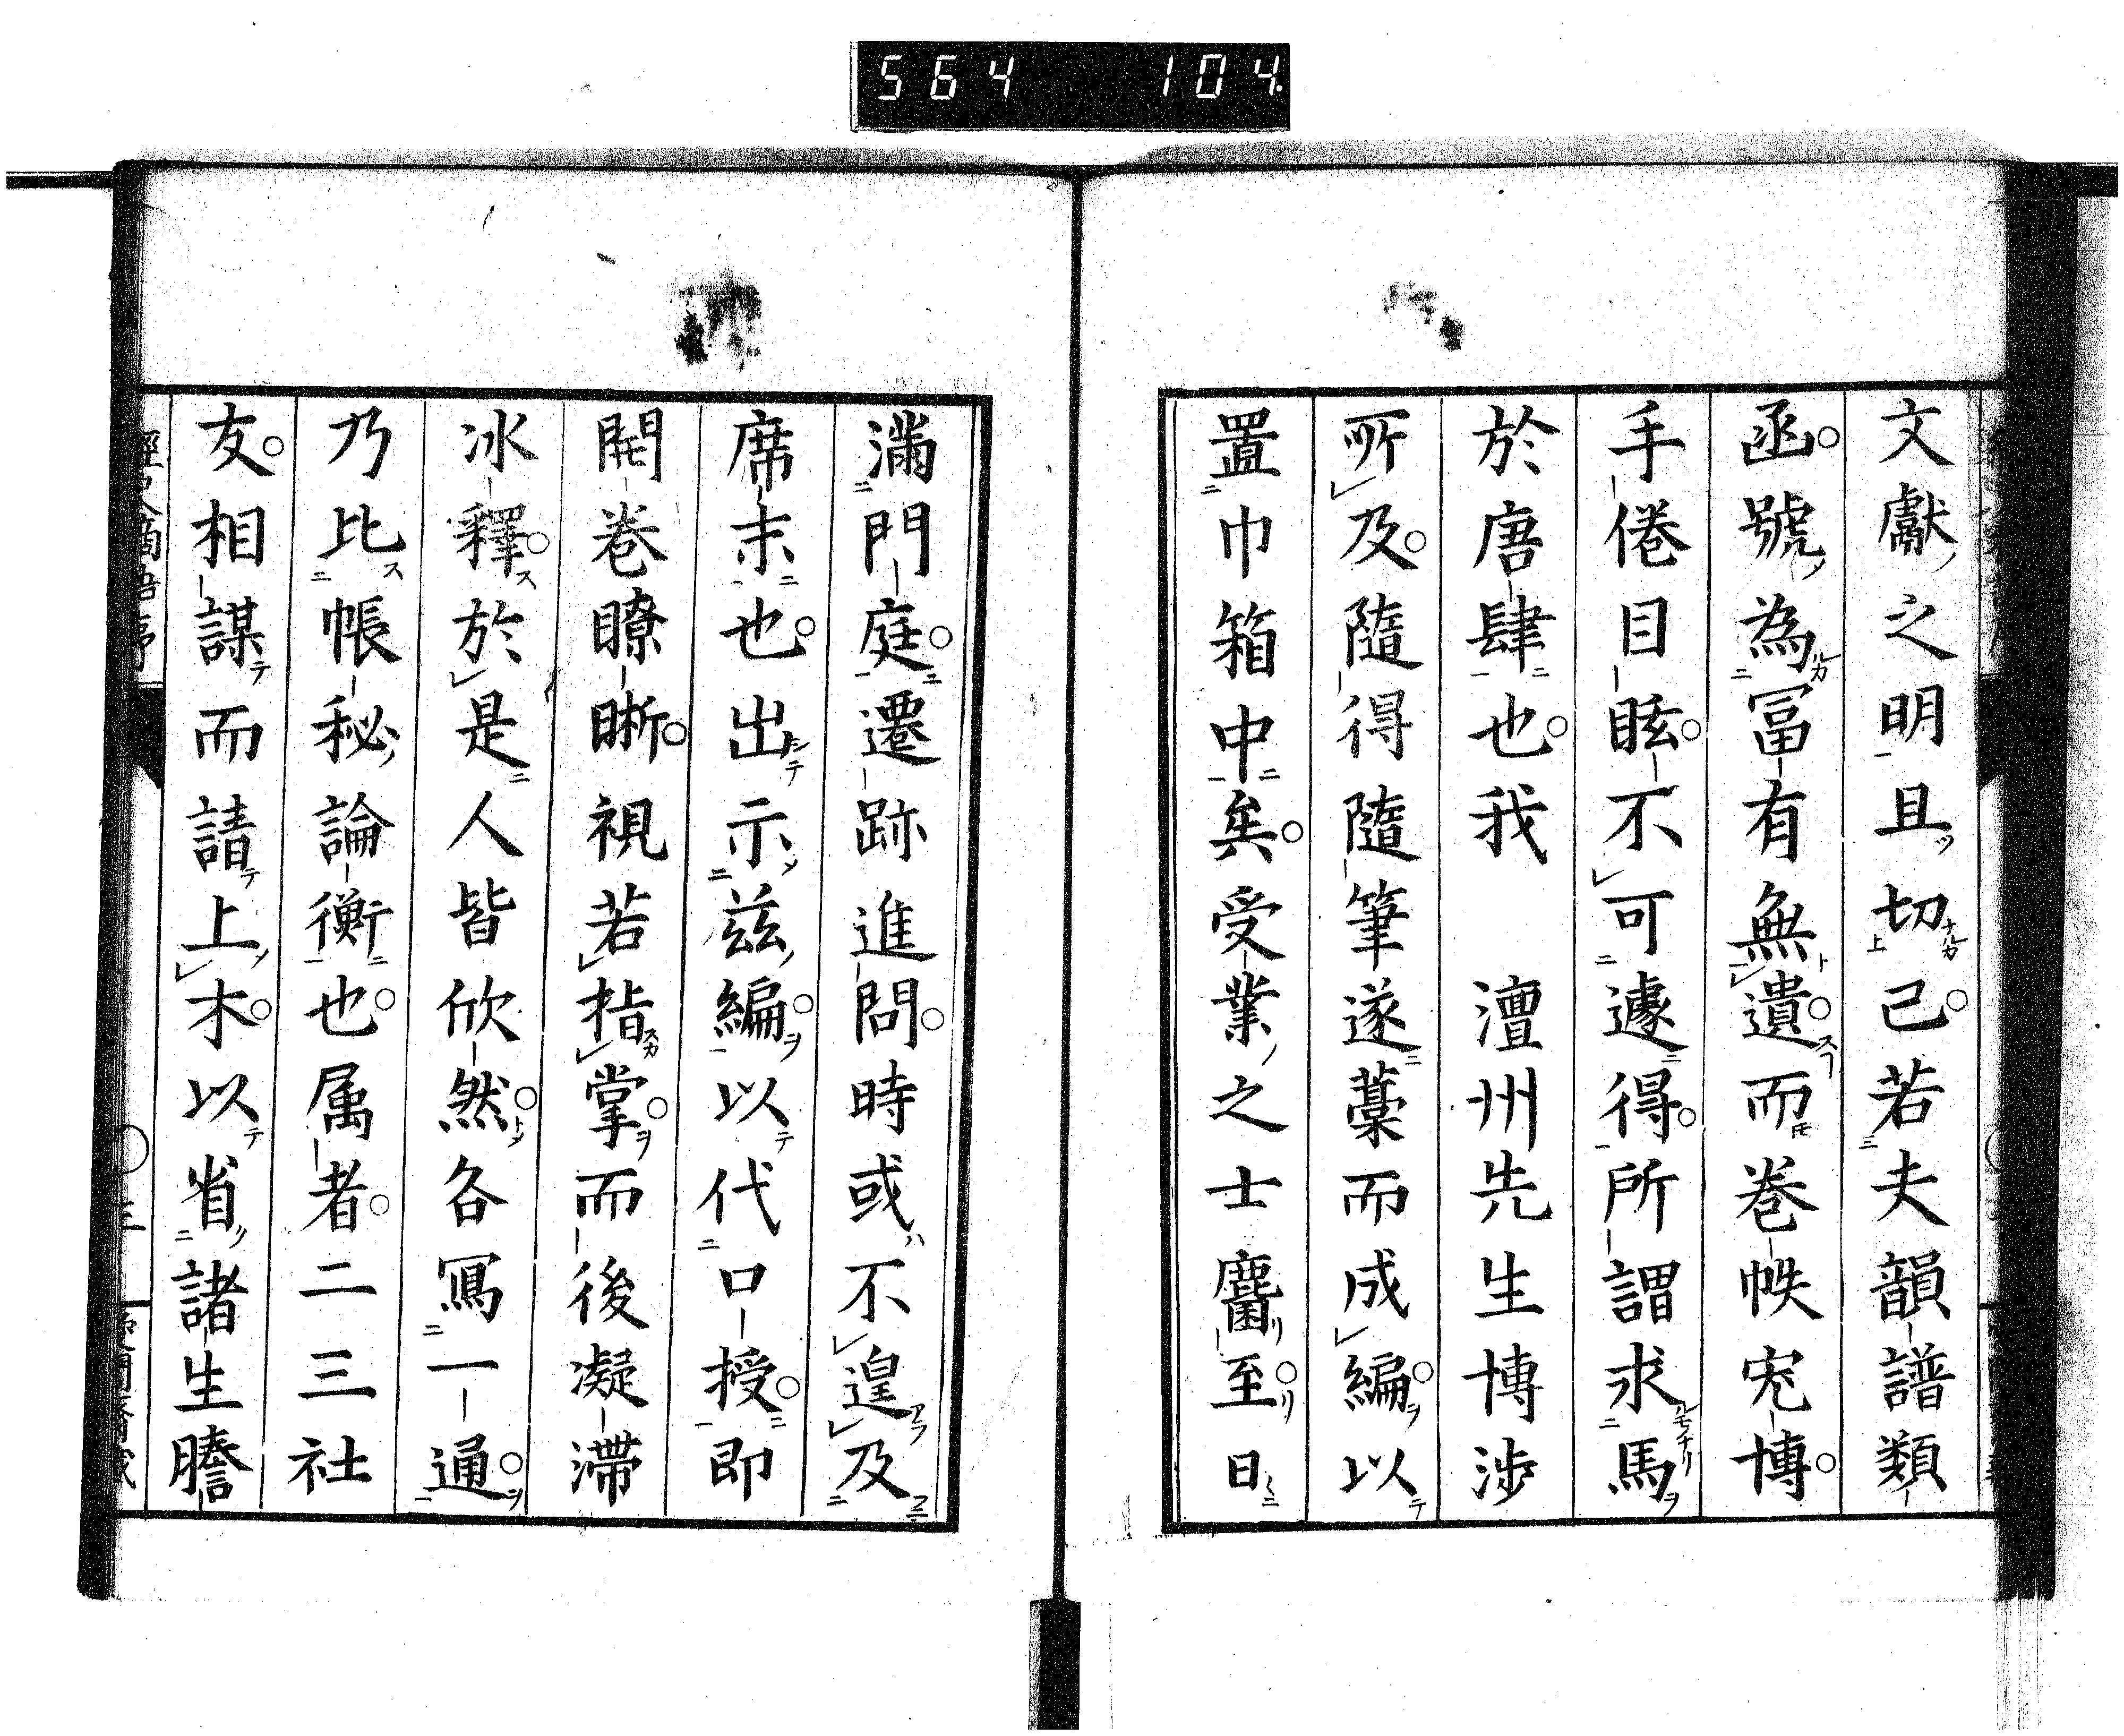 564 104
文獻之明且切己若夫韻譜類
函號為冨有無遺而巻帙宂博
手倦目眩不可遽得所謂求馬
於唐肆也我 澶州先生博渉
所及隨得隨筆遂藁而成編以
置巾箱中矣受業之士麕至日
滿門庭遷跡進問時或不遑及
席末也出示茲編以代口授即
開巻瞭晣視若指掌而後凝滯
冰釋於是人皆欣然各冩一通
乃比帳秘論衡也属者二三社
友相謀而請上木以省諸生謄